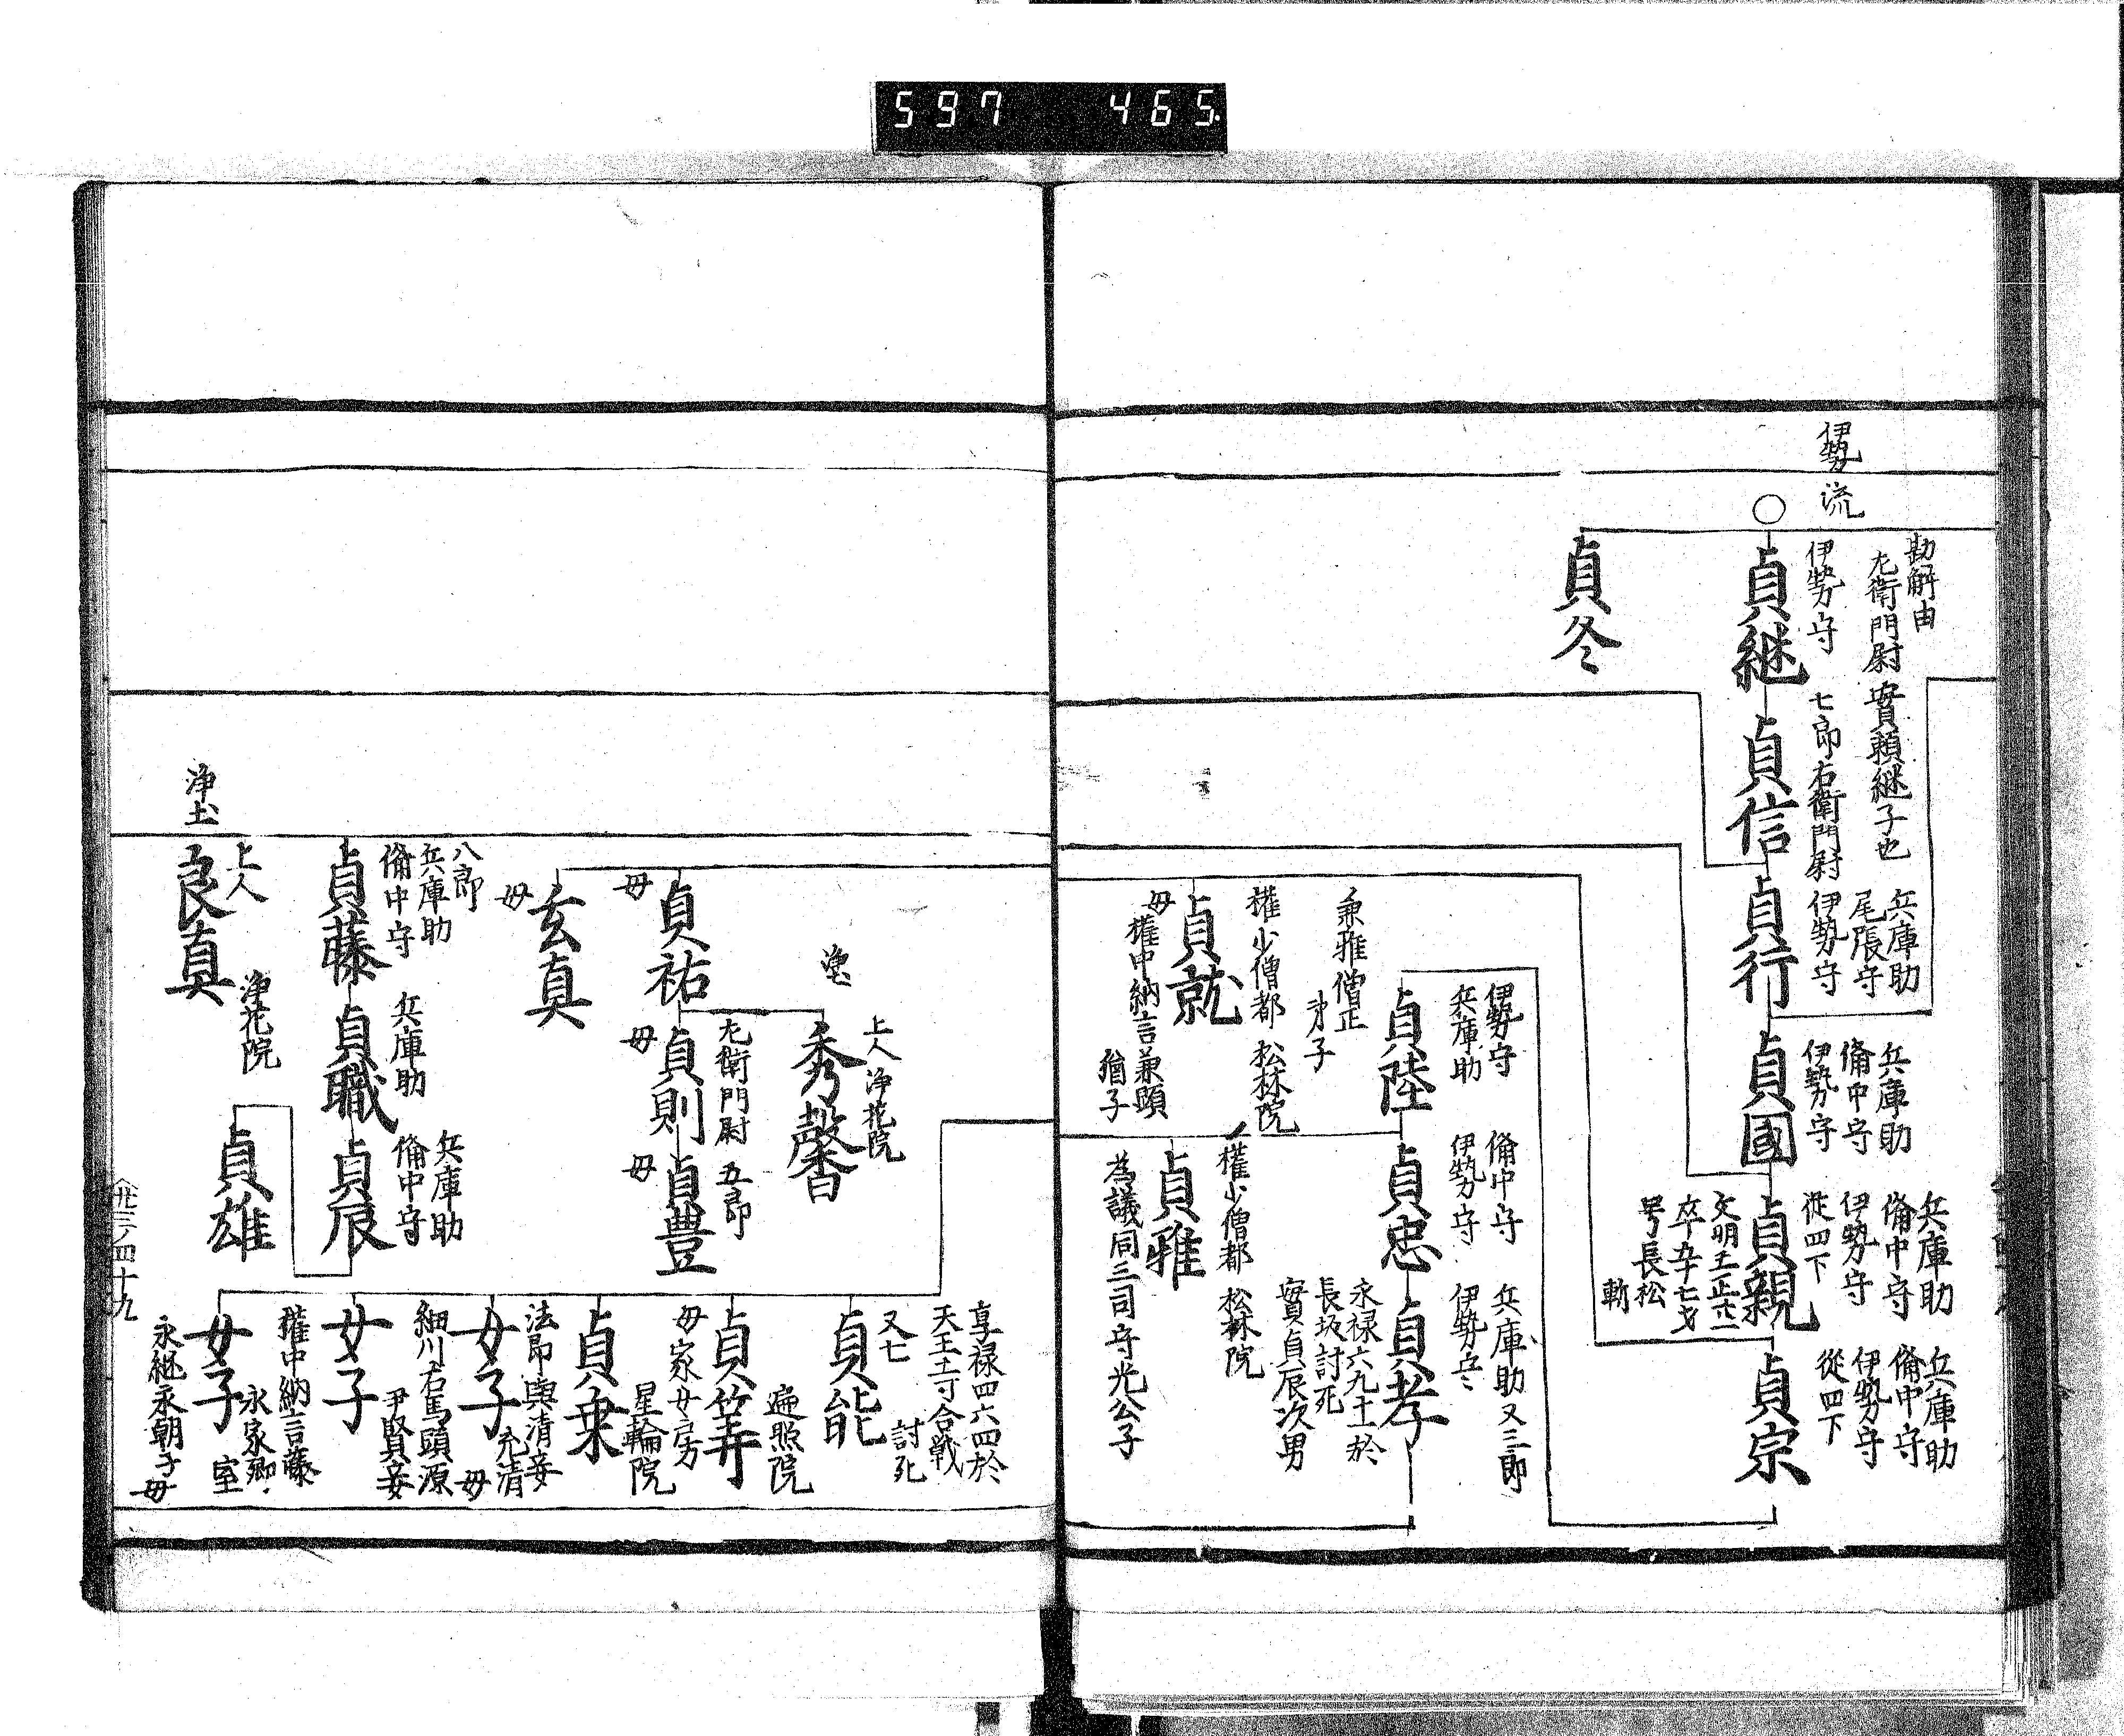 597 465
伊勢
流
勘解由
左衛門尉 實頼継子也
伊勢守
貞継
貞冬
七郎右衛門尉
貞信
兵庫助
尾張守
伊勢守
貞行
兵庫助
備中守
伊勢守
貞國
兵庫助
備中守
伊勢守
従四下
貞親
卒五十七才
号長松
斬
兵庫助
備中守
伊勢守
従四下
貞宗
伊勢守
兵庫助
貞陸
備中守
伊勢守
貞忠
兵庫助 又三郎
伊勢守
貞孝
永禄六九十一於
長坂討死
實貞辰次男
兼雅僧正
弟子
權少僧都 松林院
貞就
母
權中納言兼顕
猶子
權少僧都 松林院
貞雅
為議同三司守光公子
上人 浄花院
秀馨
貞祐
母
左衛門尉
貞則
母
五郎
貞豊
母
玄真
母
八郎
兵庫助
備中守
貞藤
兵庫助
貞職
兵庫助
備中守
貞辰
貞雄
浄土
上人
浄花院
良真
享禄四六四於
天王寺合戦
討死
又七
貞能
遍照院
貞筭
母家女房
星輪院
貞乗
法印與清妾
充清
母
女子
細川右馬頭源
尹賢妾
女子
權中納言藤
永家卿
室
女子
永継永朝子母